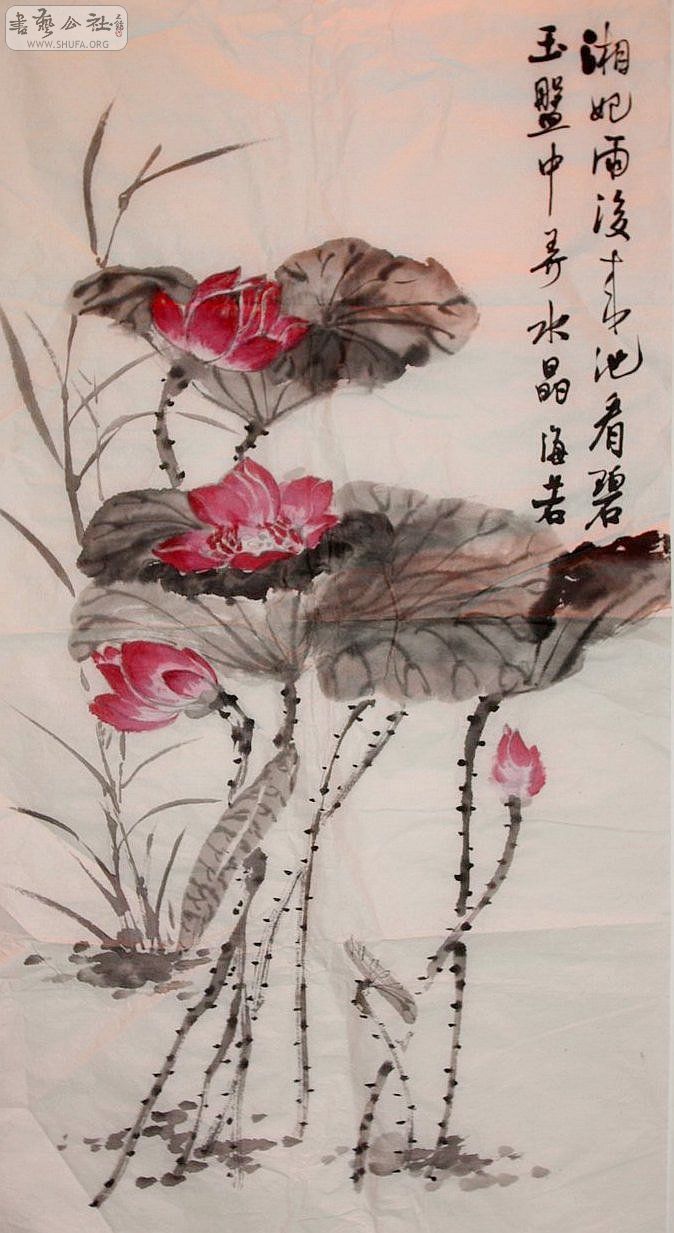 書藝公社
WWW.SHUFA.ORG
湘妃雨後来池看碧
玉盤中弄水晶 海若